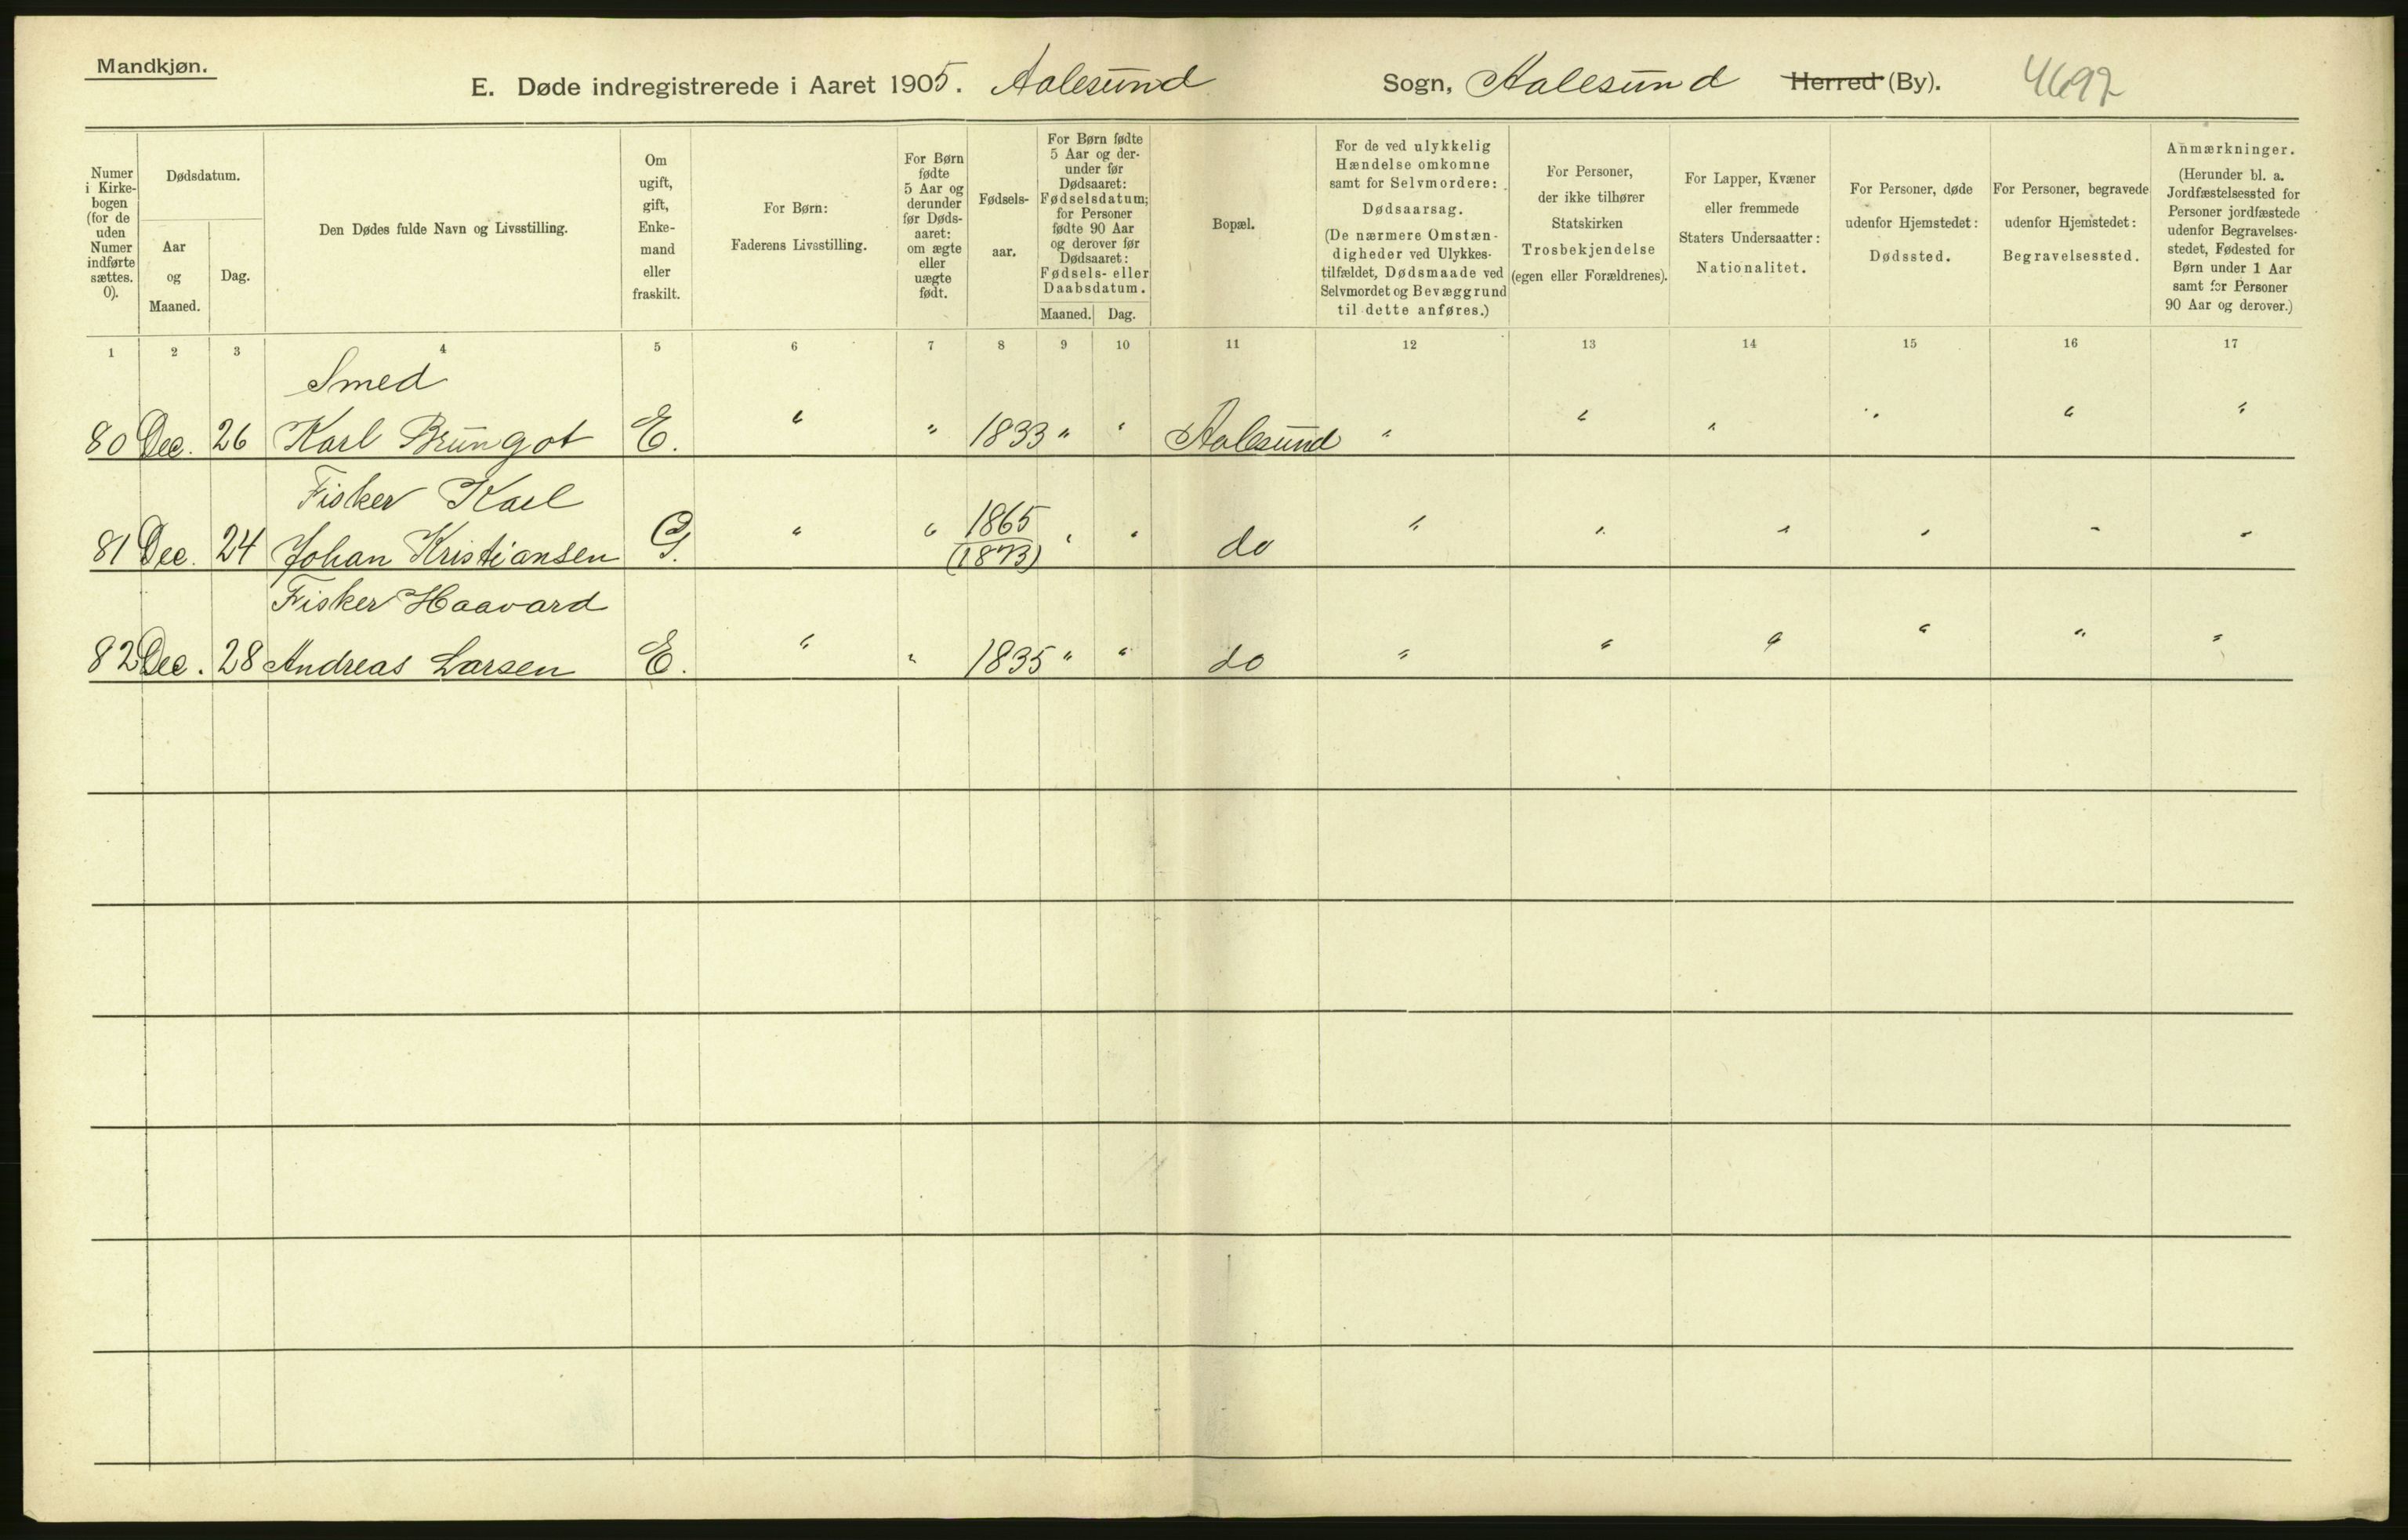 Mandkjøn.
E. Døde indregistrerede i Aaret 1905. Aalesund Sogn, Aalesund Herred (By). 4692
Numer i Kirke-bogen (for de uden Numer indførte sættes. 0).
Dødsdatum.
Aar og Maaned.
Dag.
Den Dødes fulde Navn og Livsstilling.
Om ugift, gift, Enke-mand eller fraskilt.
For Børn: Faderens Livsstilling.
For Børn fødte 5 Aar og derunder før Døds-aaret: om ægte eller uægte født.
Fødsels-aar.
For Børn fødte 5 Aar og der-under før Dødsaaret: Fødselsdatum; for Personer fødte 90 Aar og derover før Dødsaaret: Fødsels- eller Daabsdatum.
Maaned. Dag.
Bopæl.
For de ved ulykkelig Hændelse omkomne samt for Selvmordere: Dødsaarsag. (De nærmere Omstæn-digheder ved Ulykkes-tilfældet, Dødsmaade ved Selvmordet og Bevæggrund til dette anføres.)
For Personer, der ikke tilhører Statskirken Trosbekjendelse (egen eller Forældrenes).
For Lapper, Kvæner eller fremmede Staters Undersaatter: Nationalitet.
For Personer, døde udenfor Hjemstedet: Dødssted.
For Personer, begravede udenfor Hjemstedet: Begravelsessted.
Anmærkninger. (Herunder bl. a. Jordfæstelsessted for Personer jordfæstede udenfor Begravelses-stedet, Fødested for Børn under 1 Aar samt for Personer 90 Aar og derover.)
1 2 3 4 5 6 7 8 9 10 11 12 13 14 15 16 17
Smed
80 Dec. 26 Karl Brungot E. " " 1833 " " Aalesund " " " " " "
Fisker Karl
81 Dec. 24 Johan Kristiansen G. " " 1865 (1873) " " do " " " " " "
Fisker Haavard
82 Dec. 28 Andreas Larsen E. " " 1835 " " do " " " " " "